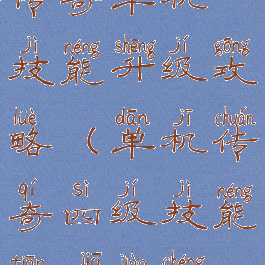 传奇单机
jì néng shēng jí gōng
技能升级攻
lüè dān jī chuán
略(单机传
qí sì jí jì néng
奇四级技能